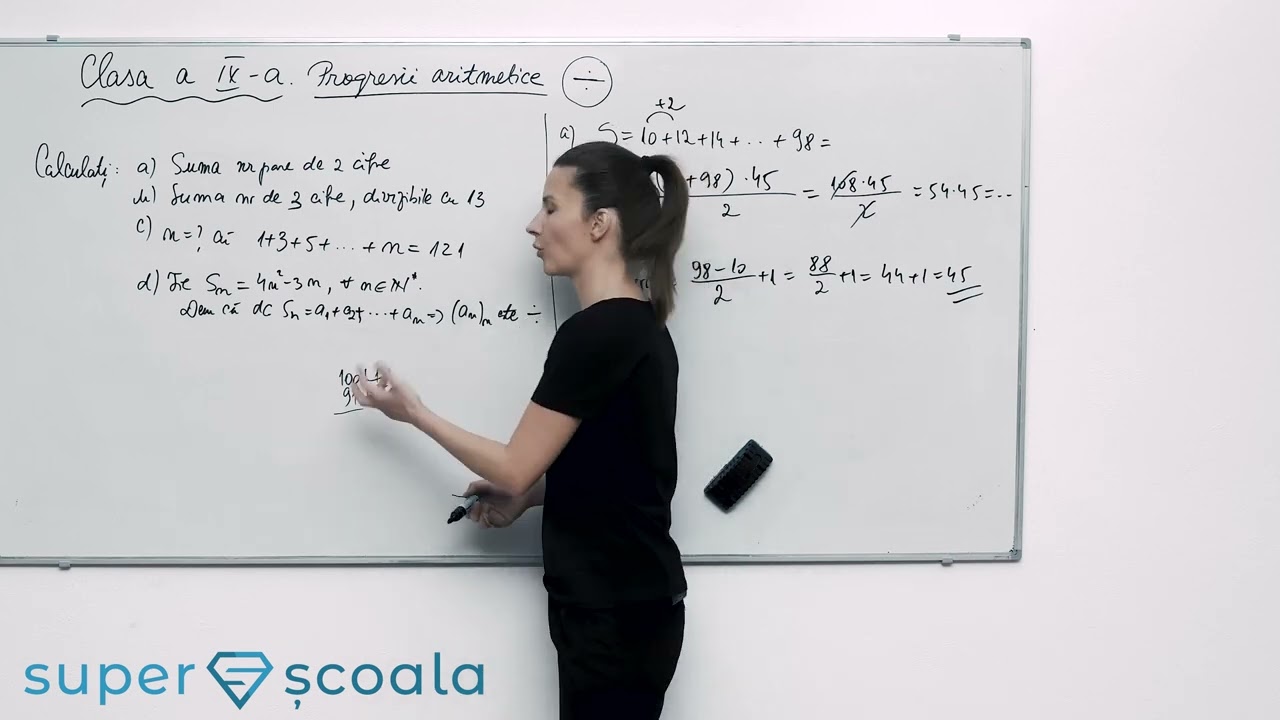 Clasa a IX-a. Progresii aritmetice ÷
Calculați: a) Suma nr pare de 2 cifre
b) Suma nr de 3 cifre, divizibile cu 13
c) n=? aî 1+3+5+...+n=121
d) Fie Sn=4n²-3n, ∀ n∈N*.
Dem că dc Sn=a1+a2+...+an=>(an)n este ÷
100
9
+2
a) S=10+12+14+...+98=
+98)·45 / 2 = 108·45 / 2 =54·45=...
98-10 / 2 +1= 88 / 2 +1=44+1=45
super școala